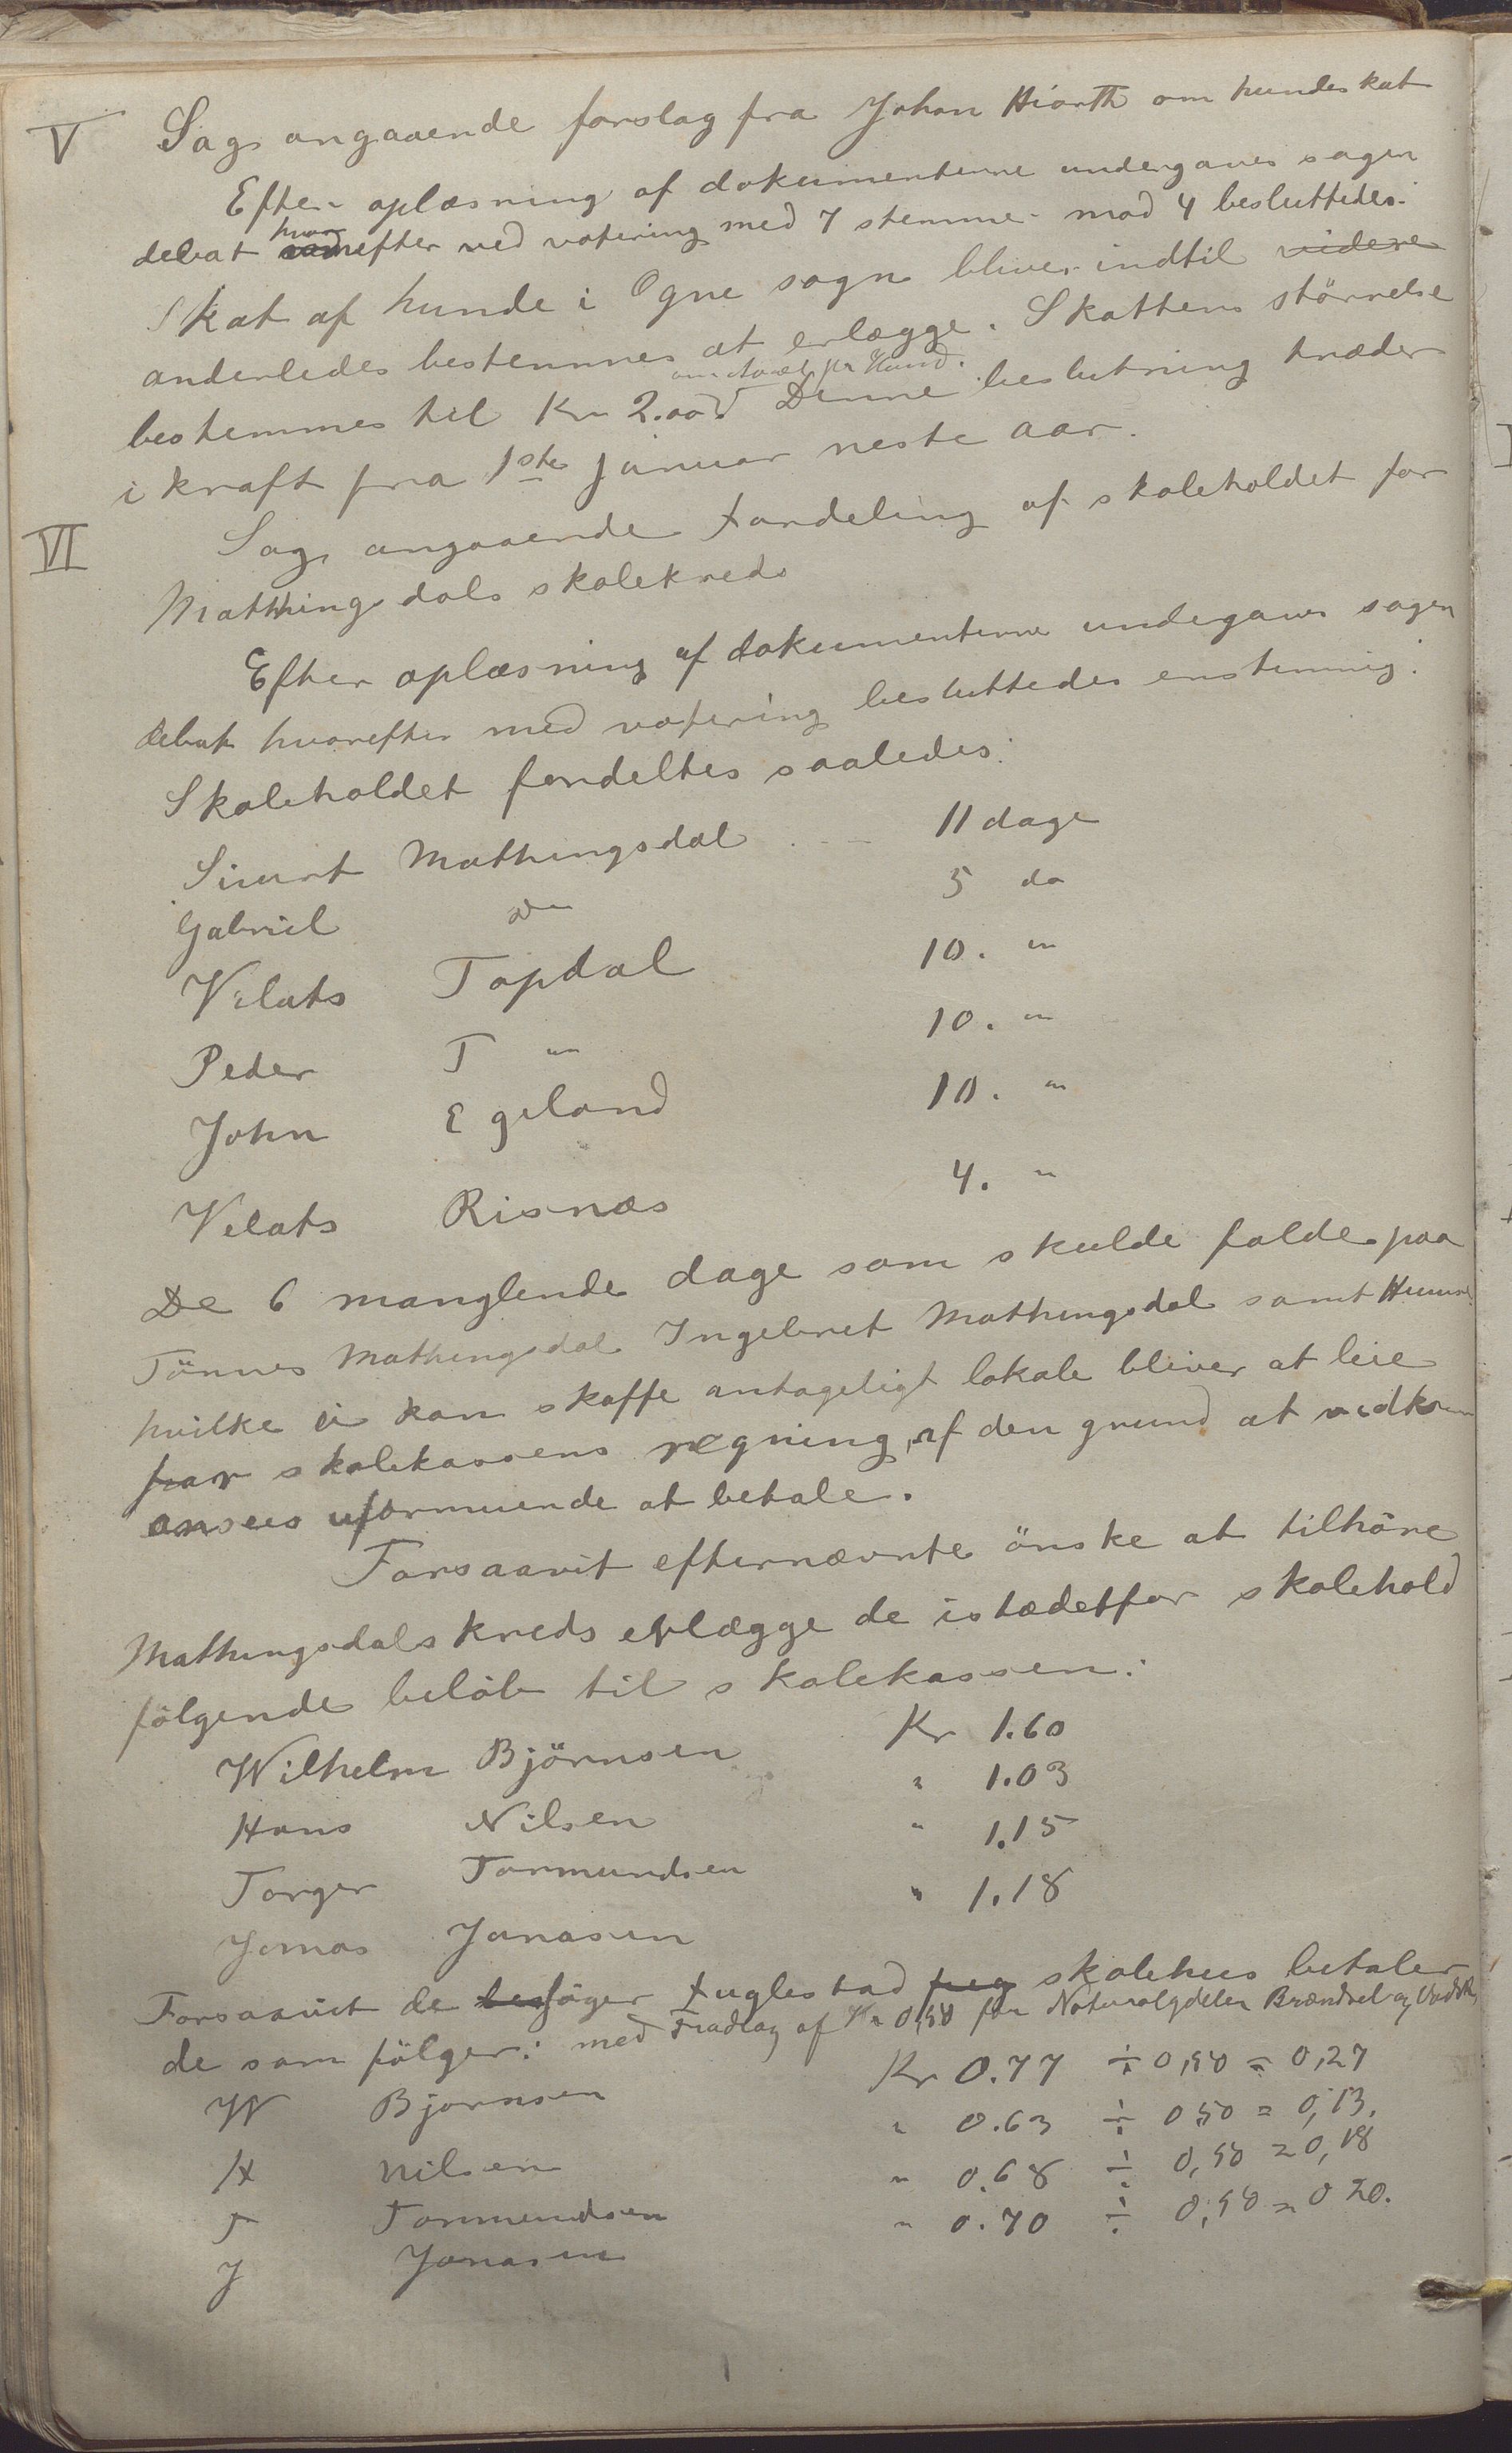 V Sag angaaende forslag fra Johan Hiorth om hundeskat
Efter oplæsning af dokumenterne undergaves sagen
debat hvorefter ved votering med 7 stemmer mod 4 besluttedes:
Skat af hunde i Ogne sogn bliver indtil videre
anderledes bestemmes at erlægge. Skattens störrelse
om Aaret pr Hund.
bestemmes til Kr 2.00. Denne beslutning træder
i kraft fra 1ste januar neste aar.
VI Sag angaaende fordeling af skoleholdet for
Mathingsdals skolekreds
Efter oplæsning af dokumenterne undergaves sagen
debat hvorefter med votering besluttedes enstemmig:
Skoleholdet fordeltes saaledes:
Sivert Mathingsdal . . . 11 dage
Gabriel do 5 do
Vilats Topdal 10. "
Peder T " 10. "
John Egeland 10. "
Velats Risnæs 4. "
De 6 manglende dage som skulde falde paa
Tönnes Mathingsdal Ingebret Mathingsdal samt
hvilke ei kan skaffe antageligt lokale bliver at leie
for skolekassens regning, af den grund at vedkom
ansees uformuende at betale.
Forsaavit efternævnte önske at tilhöre
Mathingsdals kreds erlægge de istædetfor skolehold
fölgende belöb til skolekassen:
Wilhelm Björnsen Kr 1.60
Hans Nilsen " 1.03
Torger Tormundsen " 1.15
Jonas Jonasen " 1.18
Forsaavit de söger Fuglestad skolehus betaler
de som fölger: med Fradrag af Kr 0,50 for Naturalydelser Brændsel og
W Bjornsen Kr 0.77 ÷ 0,50 = 0,27
H Nilsen " 0.63 ÷ 0,50 = 0,13.
T Tormundsen " 0.68 ÷ 0,50 = 0,18
J Jonasen " 0.70 ÷ 0,50 = 0 20.